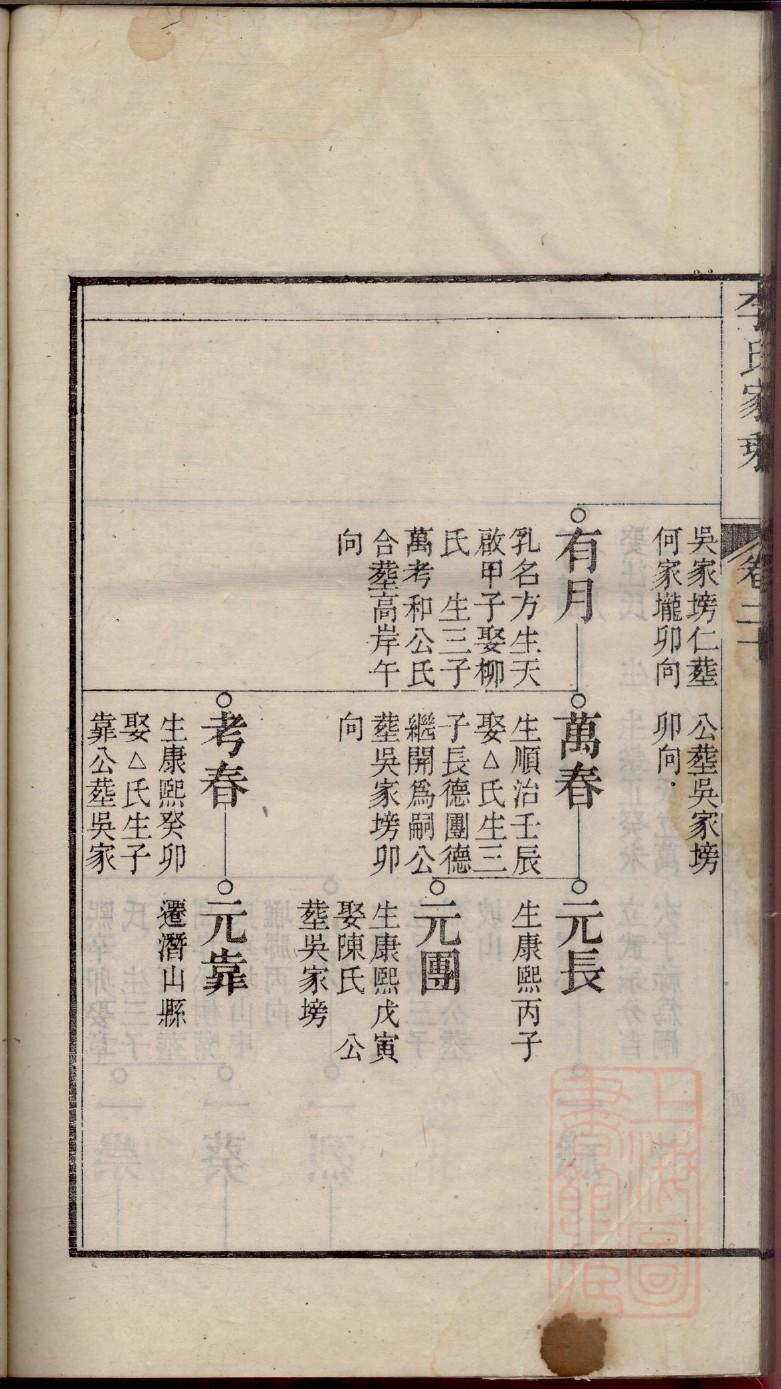 李氏家乘
卷二十
吳家塝仁塟
何家壠卯向
公塟吳家塝
卯向
有月
乳名方生天
啟甲子娶柳
氏　生三子
萬考和公氏
合塟高岸午
向
萬春
生順治壬辰
娶△氏生三
子長德團德
繼開為嗣公
塟吳家塝卯
向
考春
生康熙癸卯
娶△氏生子
靠公塟吳家
元長
生康熙丙子
元團
生康熙戊寅
娶陳氏　公
塟吳家塝
元靠
遷潛山縣
上海圖
書館藏